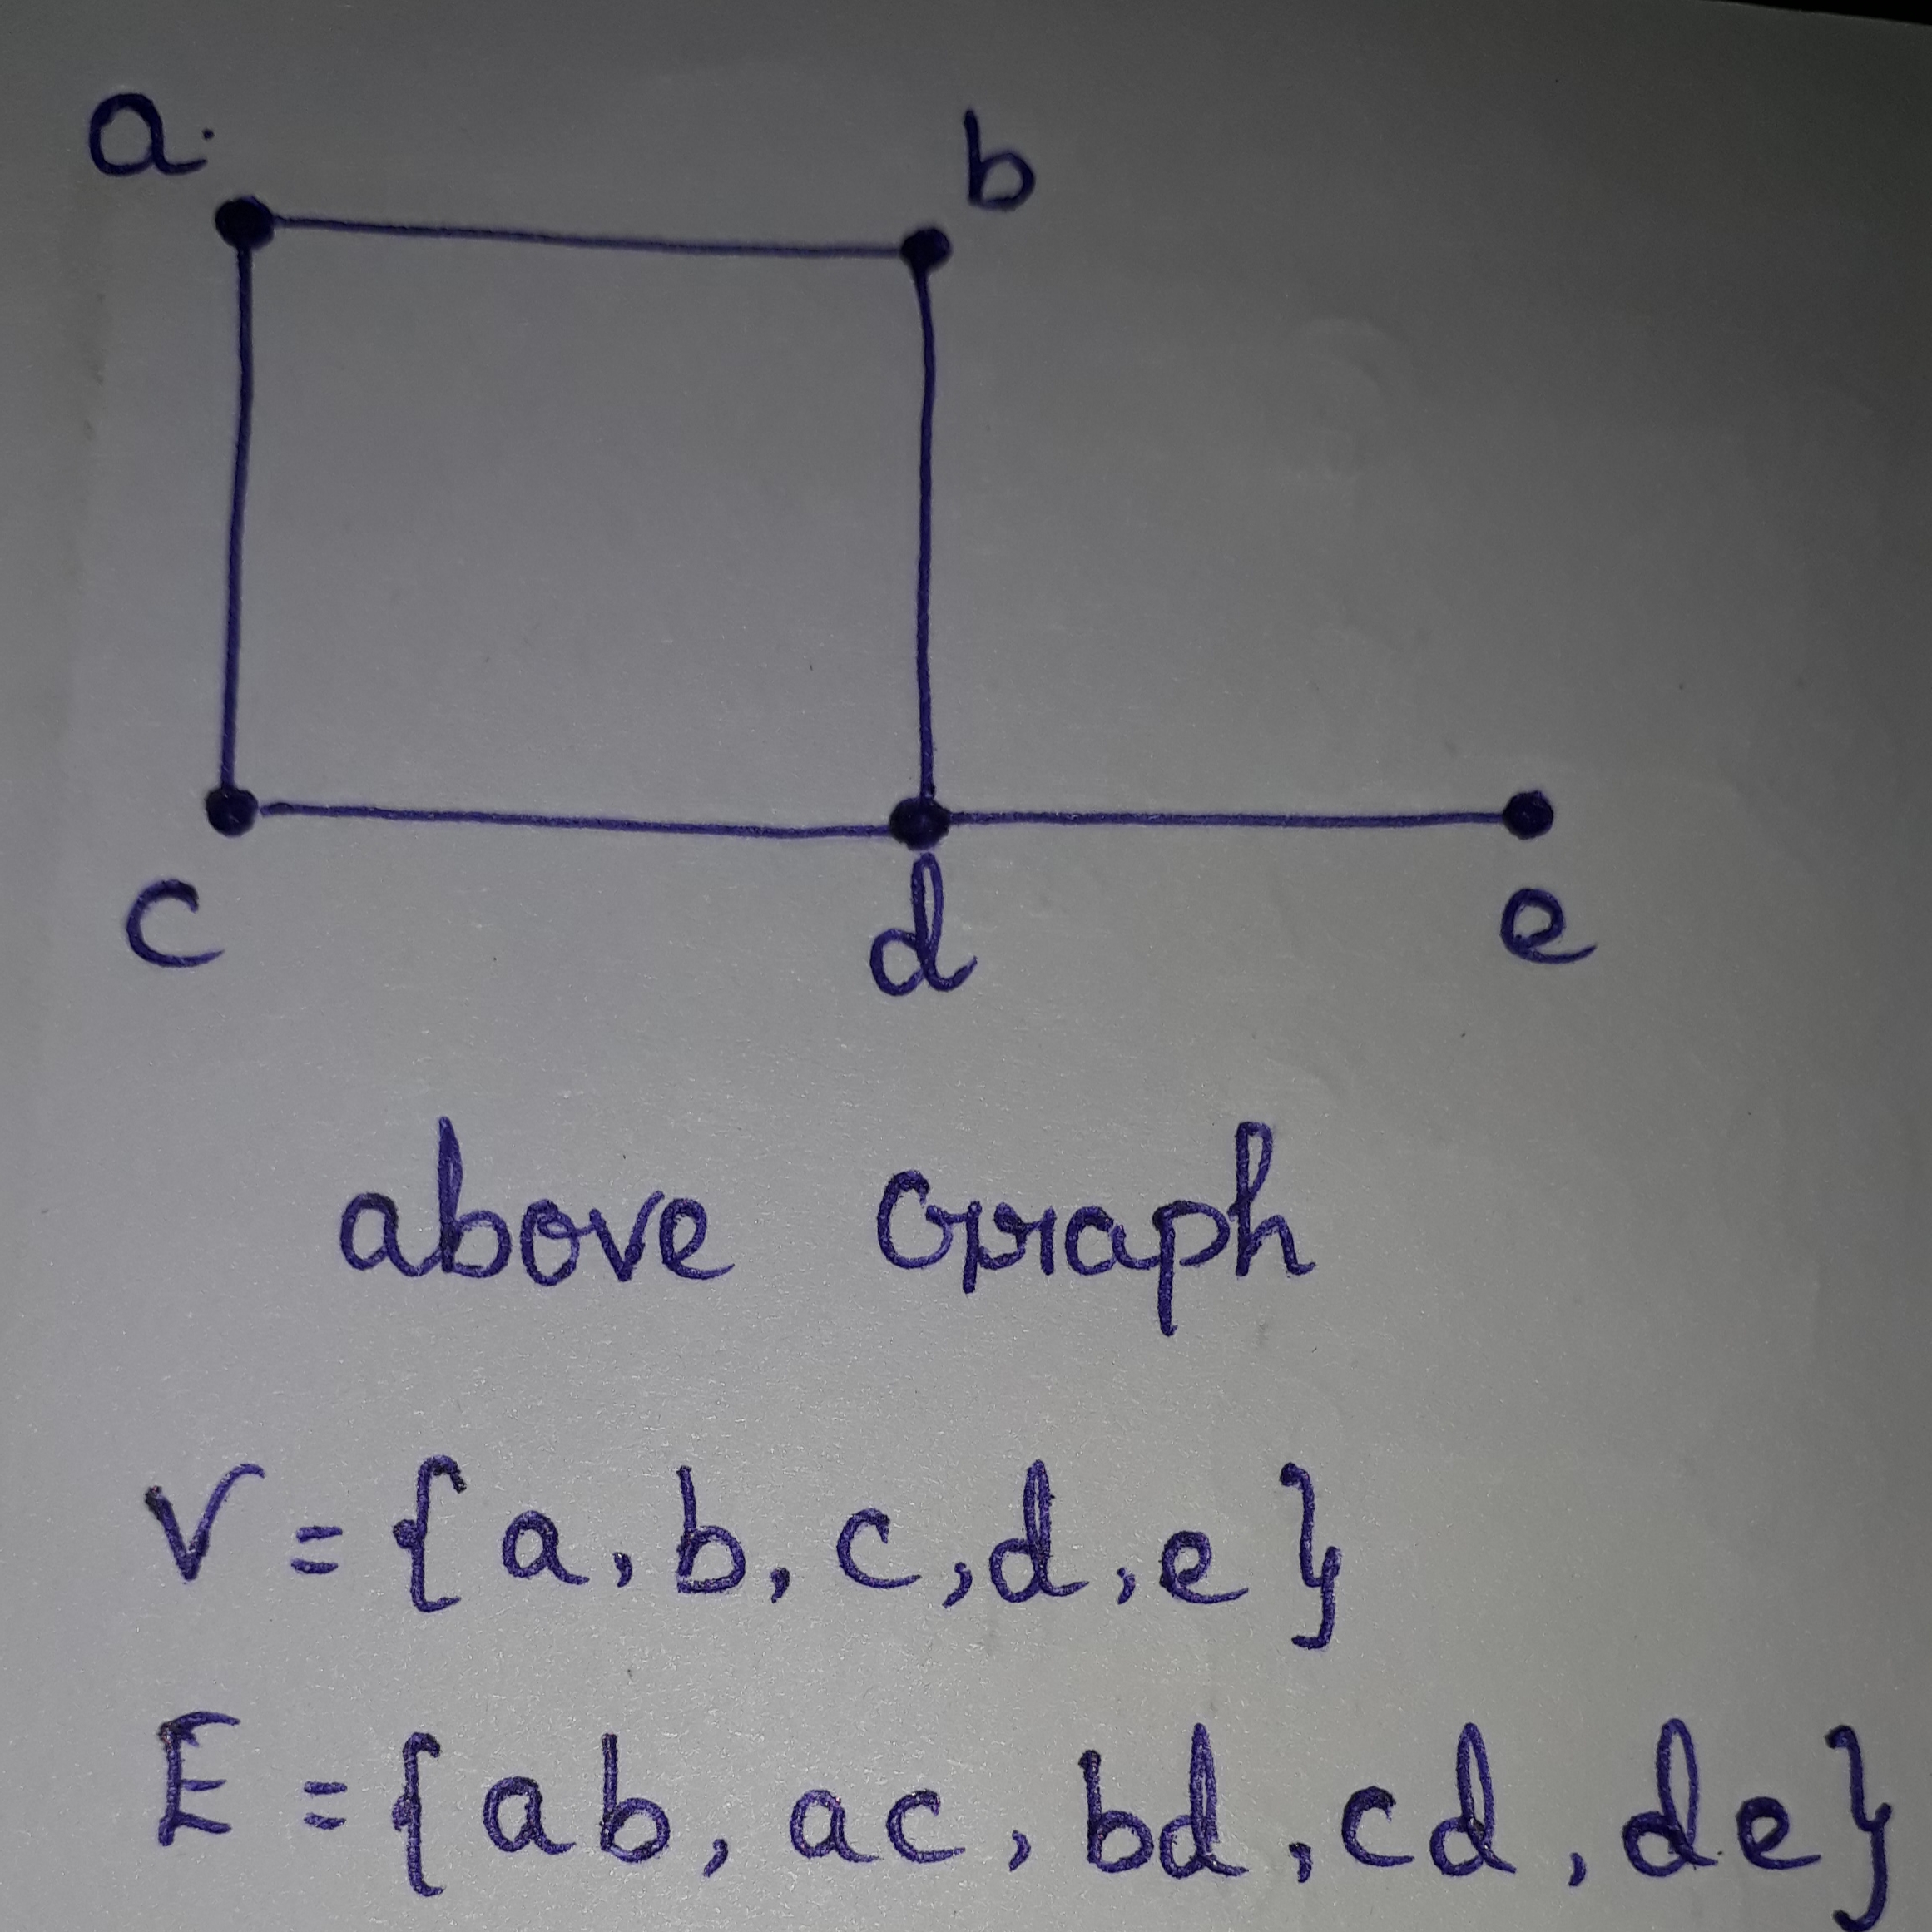 a. b
c d e
above Graph
V = { a, b, c, d, e }
E = { ab, ac, bd, cd, de }